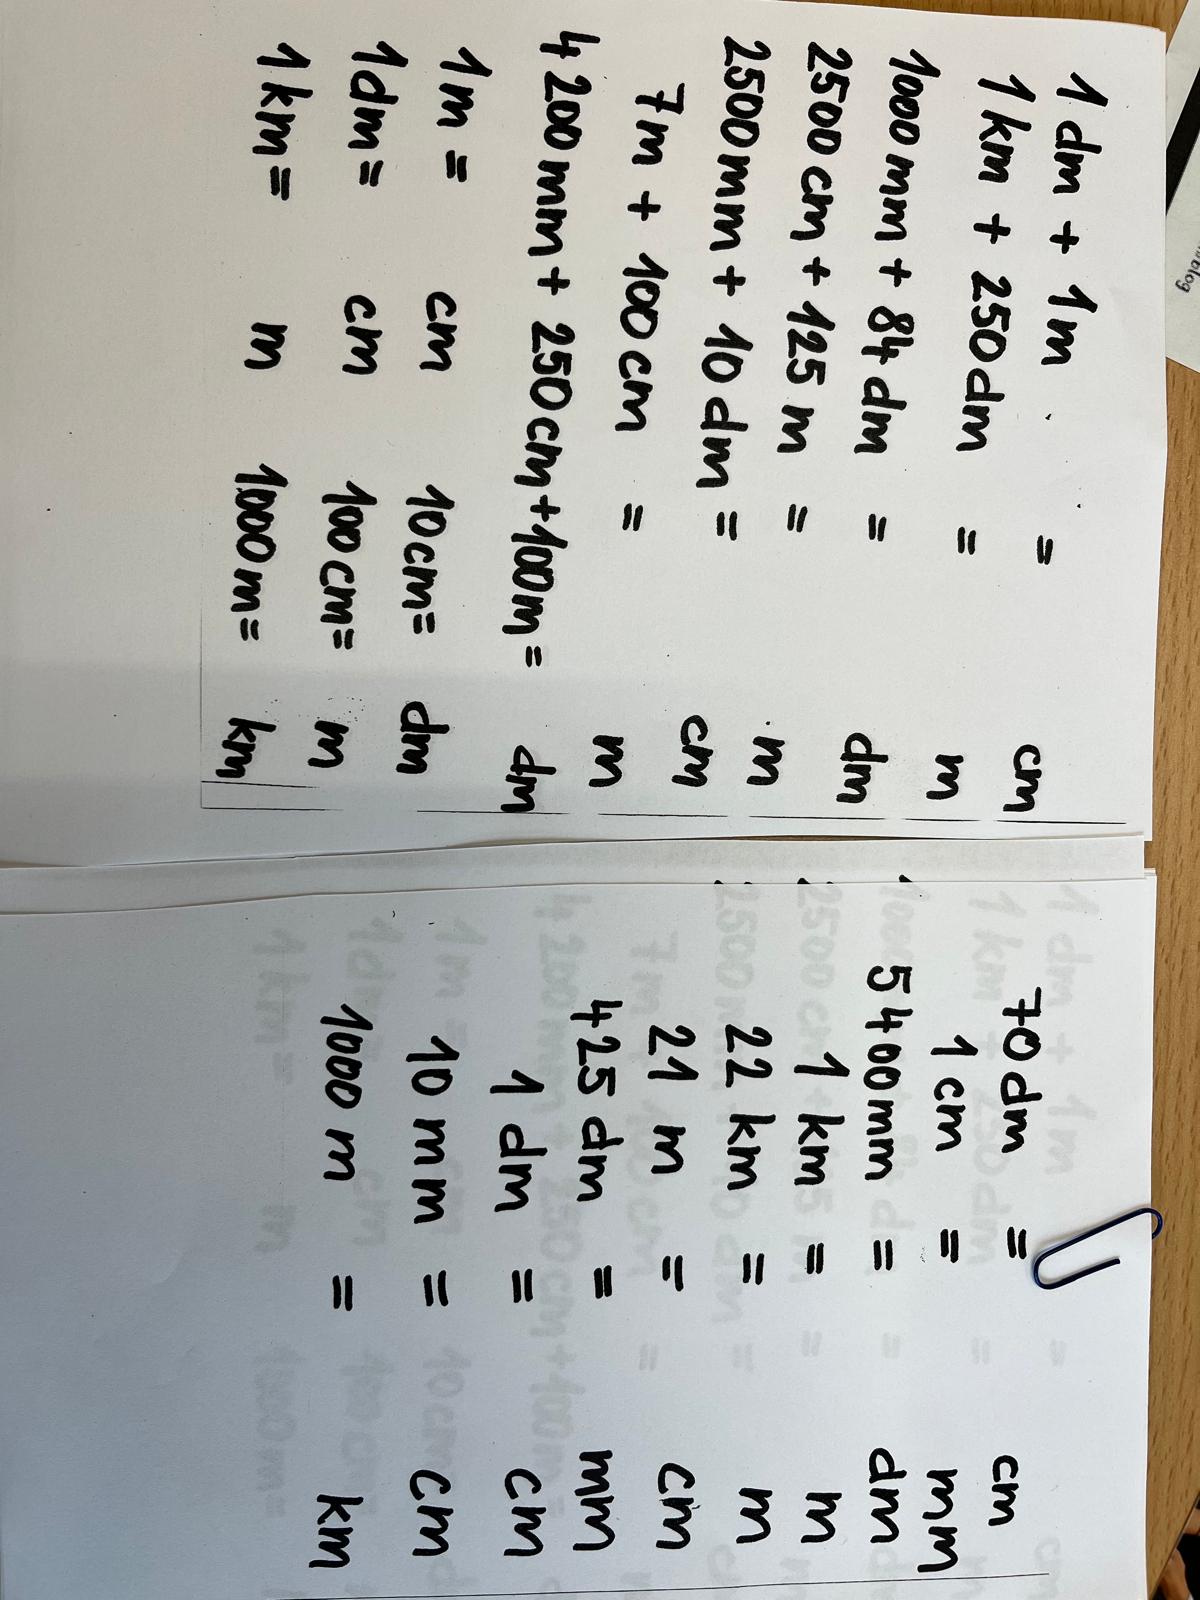 1 dm + 1m = cm
1 km + 250dm = m
1000 mm + 84 dm = dm
2500 cm + 125 m = m
2500mm + 10 dm = cm
7m + 100 cm = m
4 200 mm + 250cm+100m= dm
1m = cm 10cm= dm
1dm= cm 100cm= m
1km= m 1000m= km
70 dm = cm
1 cm = mm
5400mm = dm
1 km = m
22 km = m
21 m = cm
425 dm = mm
1 dm = cm
10 mm = cm
1000 m = km